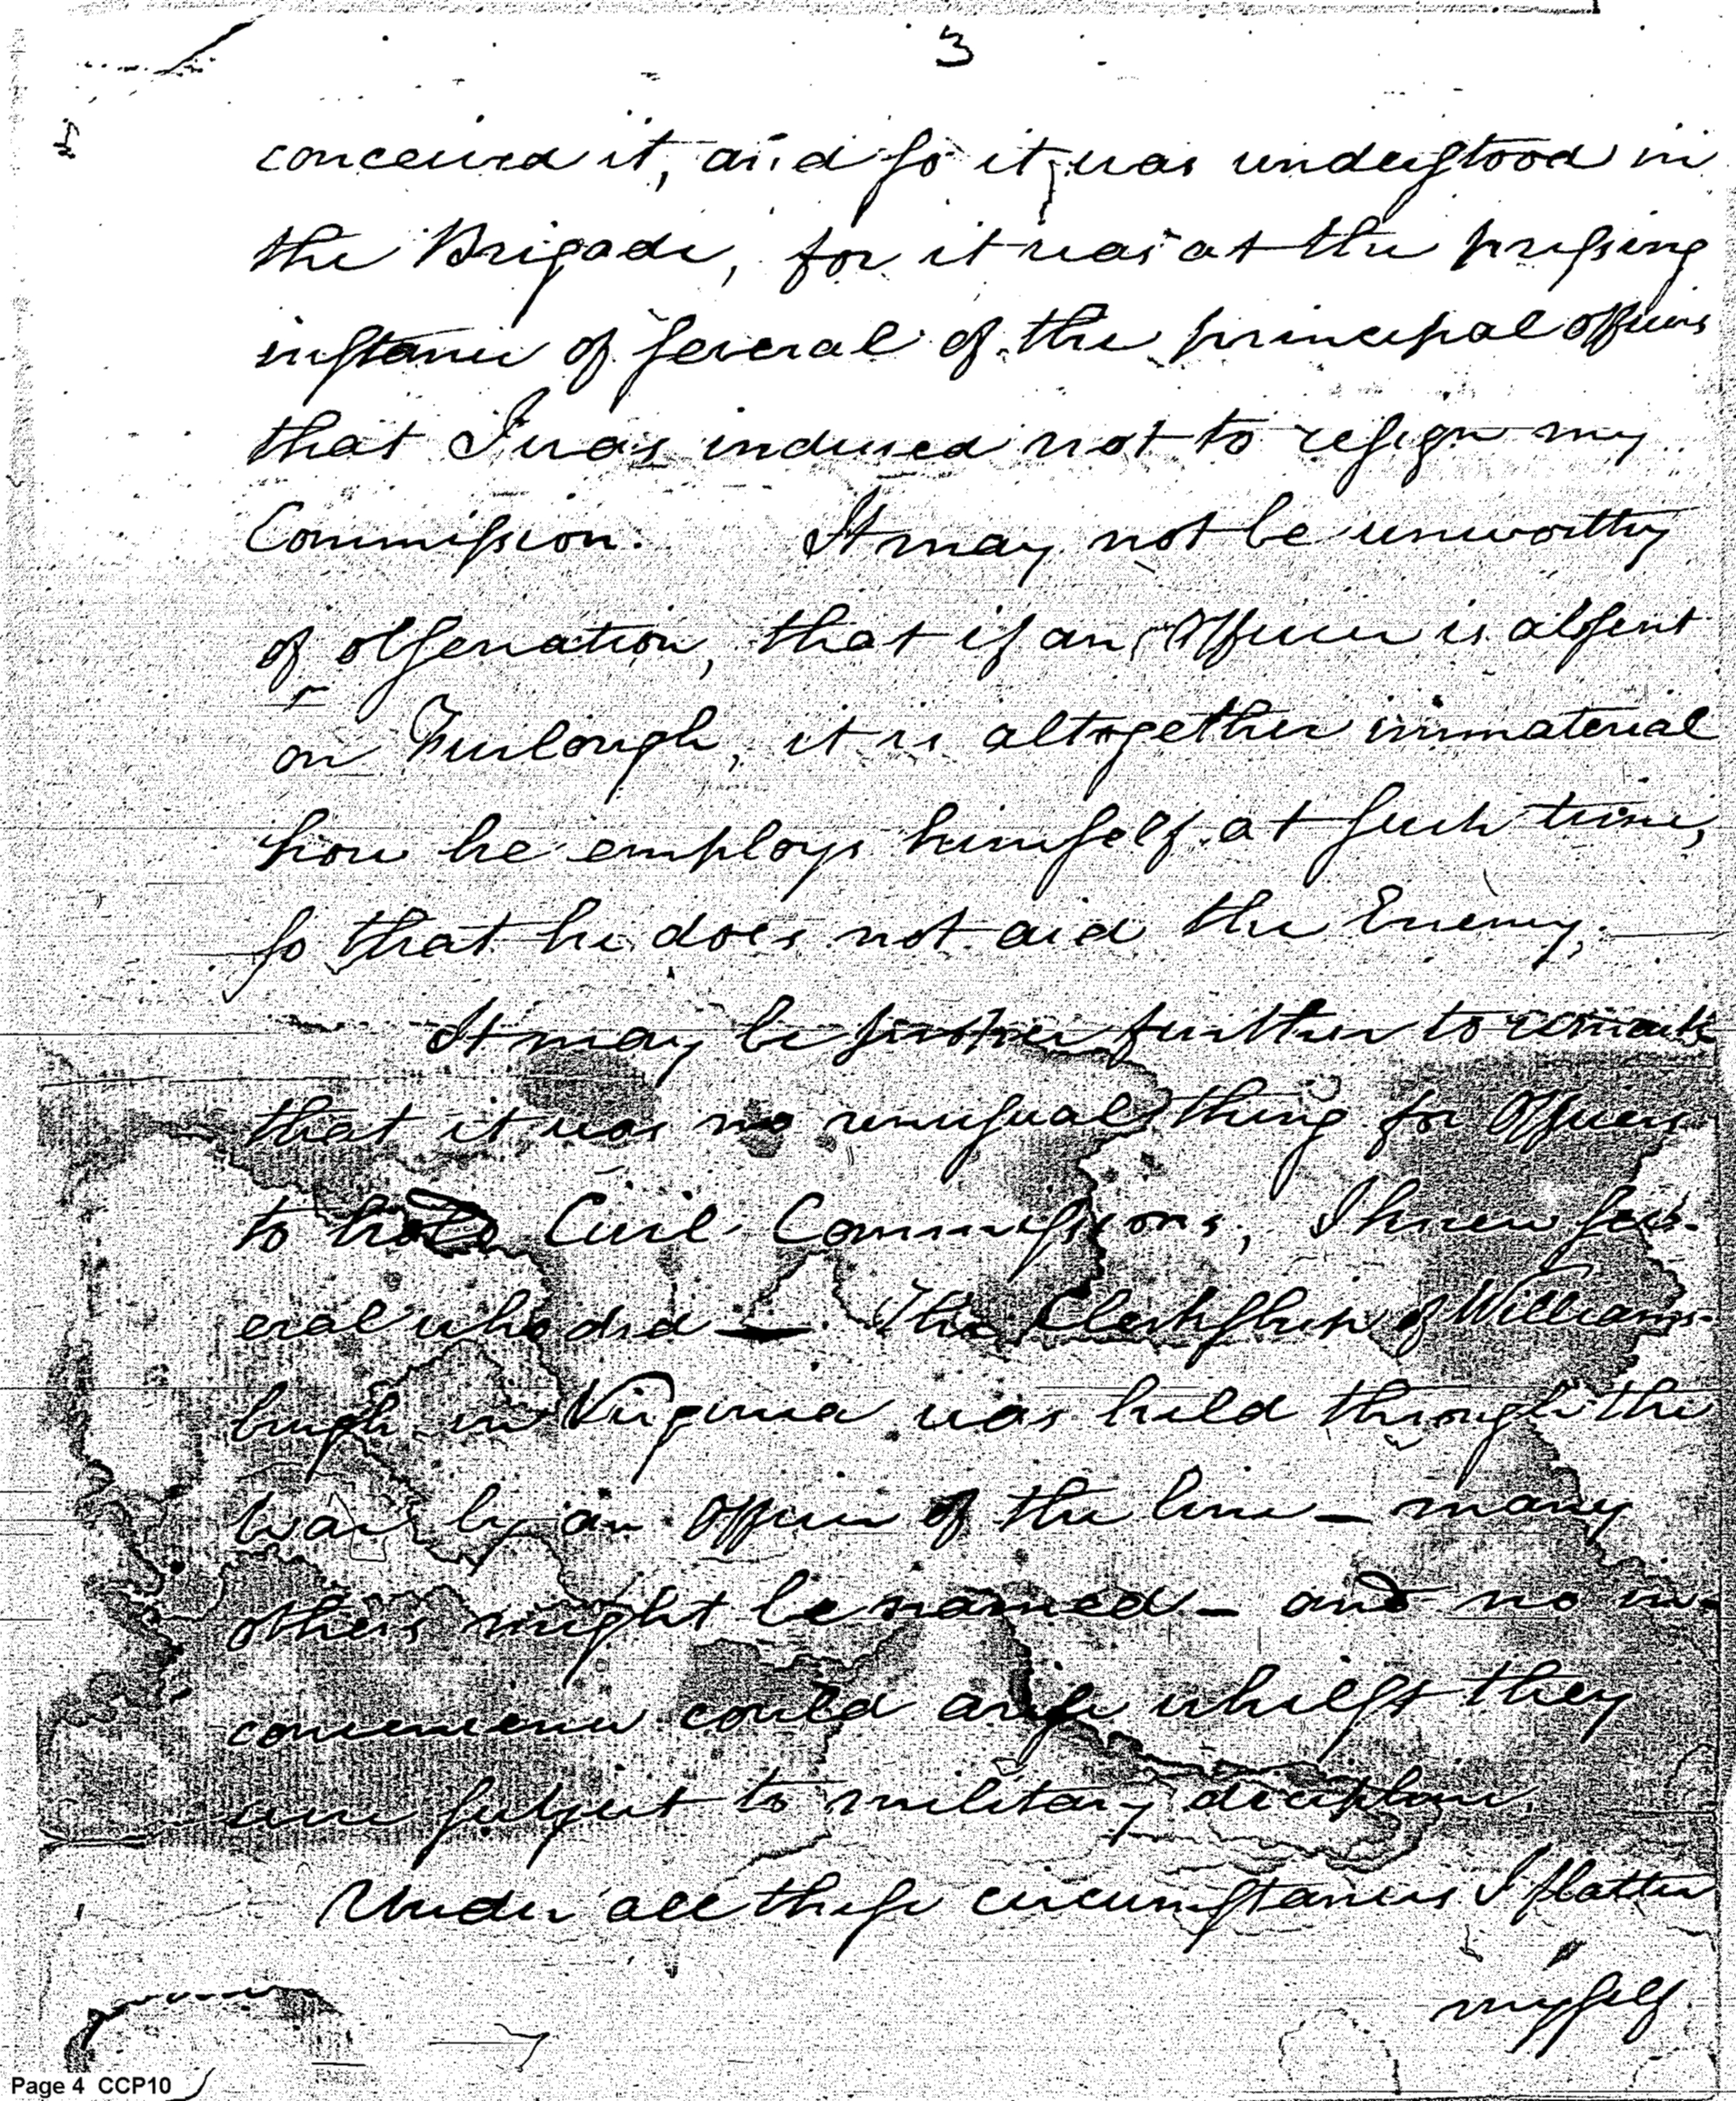 3
conceived it, and so it was understood in
the Brigade, for it was at the pressing
instance of several of the principal officers
that I was induced not to resign my
Commission. It may not be unworthy
of observation, that if an Officer is absent
on Furlough, it is altogether immaterial
how he employs himself at such time,
so that he does not aid the Enemy.
It may be further to remark
that it was no unusual thing for Officers
to hold Civil Commissions, I knew sev-
eral who did — The Clerkship of Williams-
burgh in Virginia was held through the
War by an Officer of the line — many
others might be named — and no in-
convenience could arise whilst they
were subject to military
Under all these circumstances I flatter
myself
Page 4 CCP10